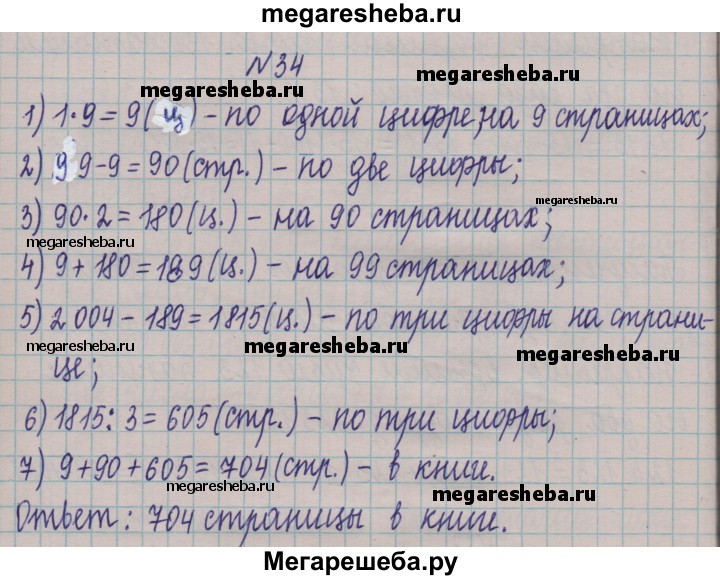 megaresheba.ru
N 34
megaresheba.ru megaresheba.ru
1) 1·9=9(ц) – по одной цифре, на 9 страницах;
2) 99-9=90(стр.) – по две цифры;
megaresheba.ru
3) 90·2=180(ц.) – на 90 страницах;
megaresheba.ru
4) 9+180=189(ц.) – на 99 страницах;
5) 2004-189=1815(ц.) – по три цифры на страни-
megaresheba.ru megaresheba.ru megaresheba.ru
це;
6) 1815:3=605(стр.) – по три цифры;
7) 9+90+605=704(стр.) – в книги.
megaresheba.ru megaresheba.ru
Ответ: 704 страницы в книге.
Мегарешеба.ру